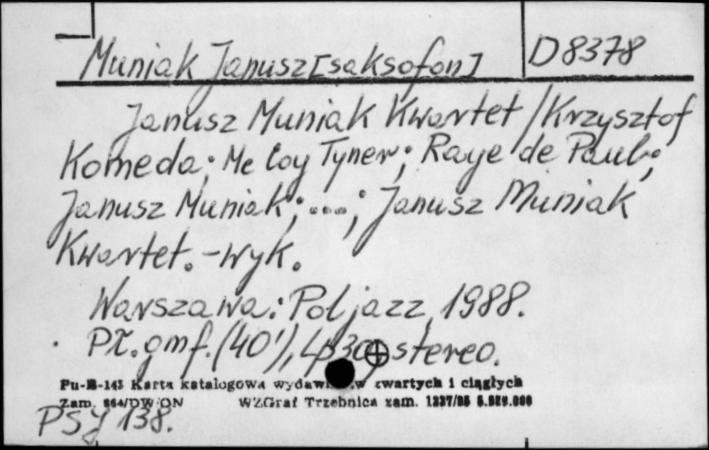 Muniak Janusz [saksofon] D 8378
Janusz Muniak Kwartet / Krzysztof
Komeda; Mc Coy Tyner; Raye de Paul;
Janusz Muniak; ...; Janusz Muniak
Kwartet. - Wyk.
Warszawa: Poljazz, 1988.
Pł. gmf. (40'), Lp 30, stereo.
Pu-B-143 Karta katalogowa zwartych i ciągłych
Zam. 264/DW/ON WZGraf Trzebnica zam.
PSJ 138.